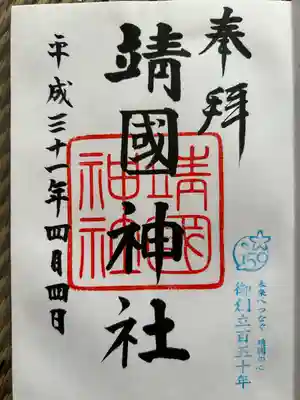 奉拝
靖國神社
靖國
神社
平成三十一年四月四日
150
未来へつなぐ 靖國の心
御創立百五十年